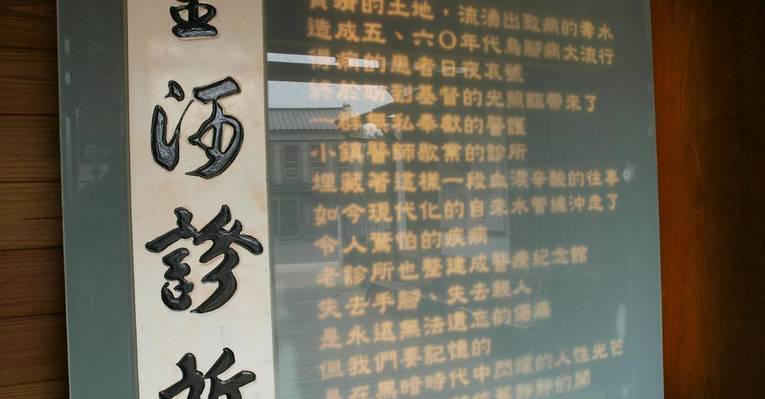 金河診所
貧瘠的土地，流湧出致病的毒水
造成五、六〇年代烏腳病大流行
得病的患者日夜哀號
終於盼到基督的光照臨帶來了
一群無私奉獻的醫護
小鎮醫師歇業的診所
埋藏著這樣一段血淚辛酸的往事
如今現代化的自來水管線沖走了
令人驚怕的疾病
老診所也整建成醫療紀念館
失去手腳 失去親人
是永遠無法遺忘的傷痛
但我們要記憶的
是在黑暗時代中閃耀的人性光芒